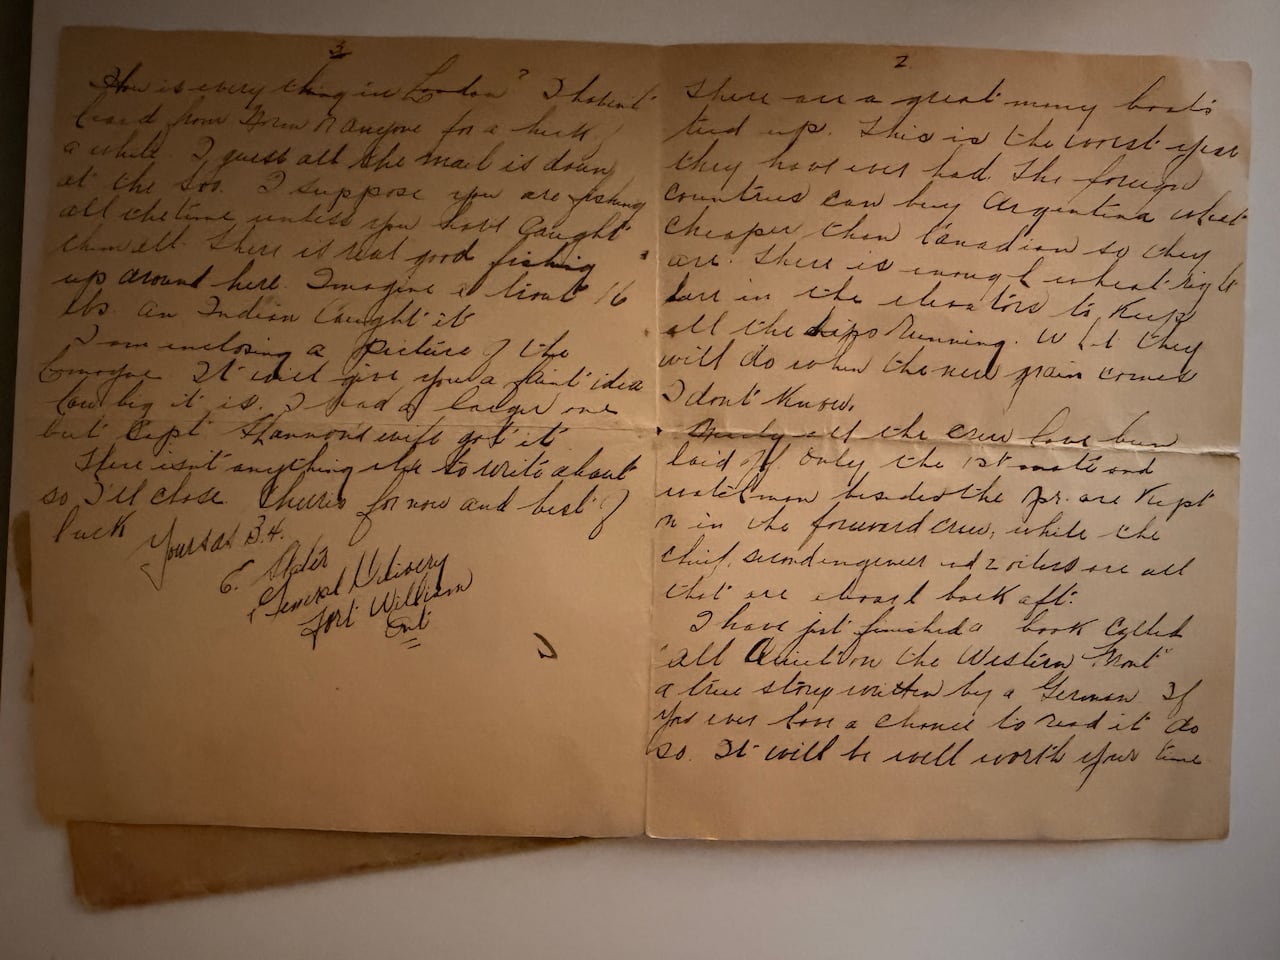 3
How is every thing in London? I havent
heard from Norm or anyone for a heck of
a while. I guess all the mail is down
at the Soo. I suppose you are fishing
all the time unless you have caught
them all. There is real good fishing
up around here. Imagine a trout 16
lbs. an Indian caught it
I am enclosing a picture of the
It will give you a faint idea
how big it is. I had a larger one
but Capt Shannon's wife got it
There isn't anything else to write about
so I'll close. Cheerio for now and best of
luck
Yours as B.4.
E.
General Delivery
Fort William
Ont
2
There are a great many boats
tied up. This is the worst year
they have ever had. The foreign
countries can buy Argentina wheat
cheaper than Canadian so they
are. There is enough wheat right
here in the elevators to keep
all the ships running. What they
will do when the new grain comes
I dont know.
Nearly all the crew have been
laid off. Only the 1st mate and
watchman besides the are kept
on in the forward crew, while the
chief, second engineer and 2 oilers are all
that are aboard back aft.
I have just finished a book called
"All Quiet on the Western Front"
a true story written by a German. If
you ever have a chance to read it do
so. It will be well worth your time